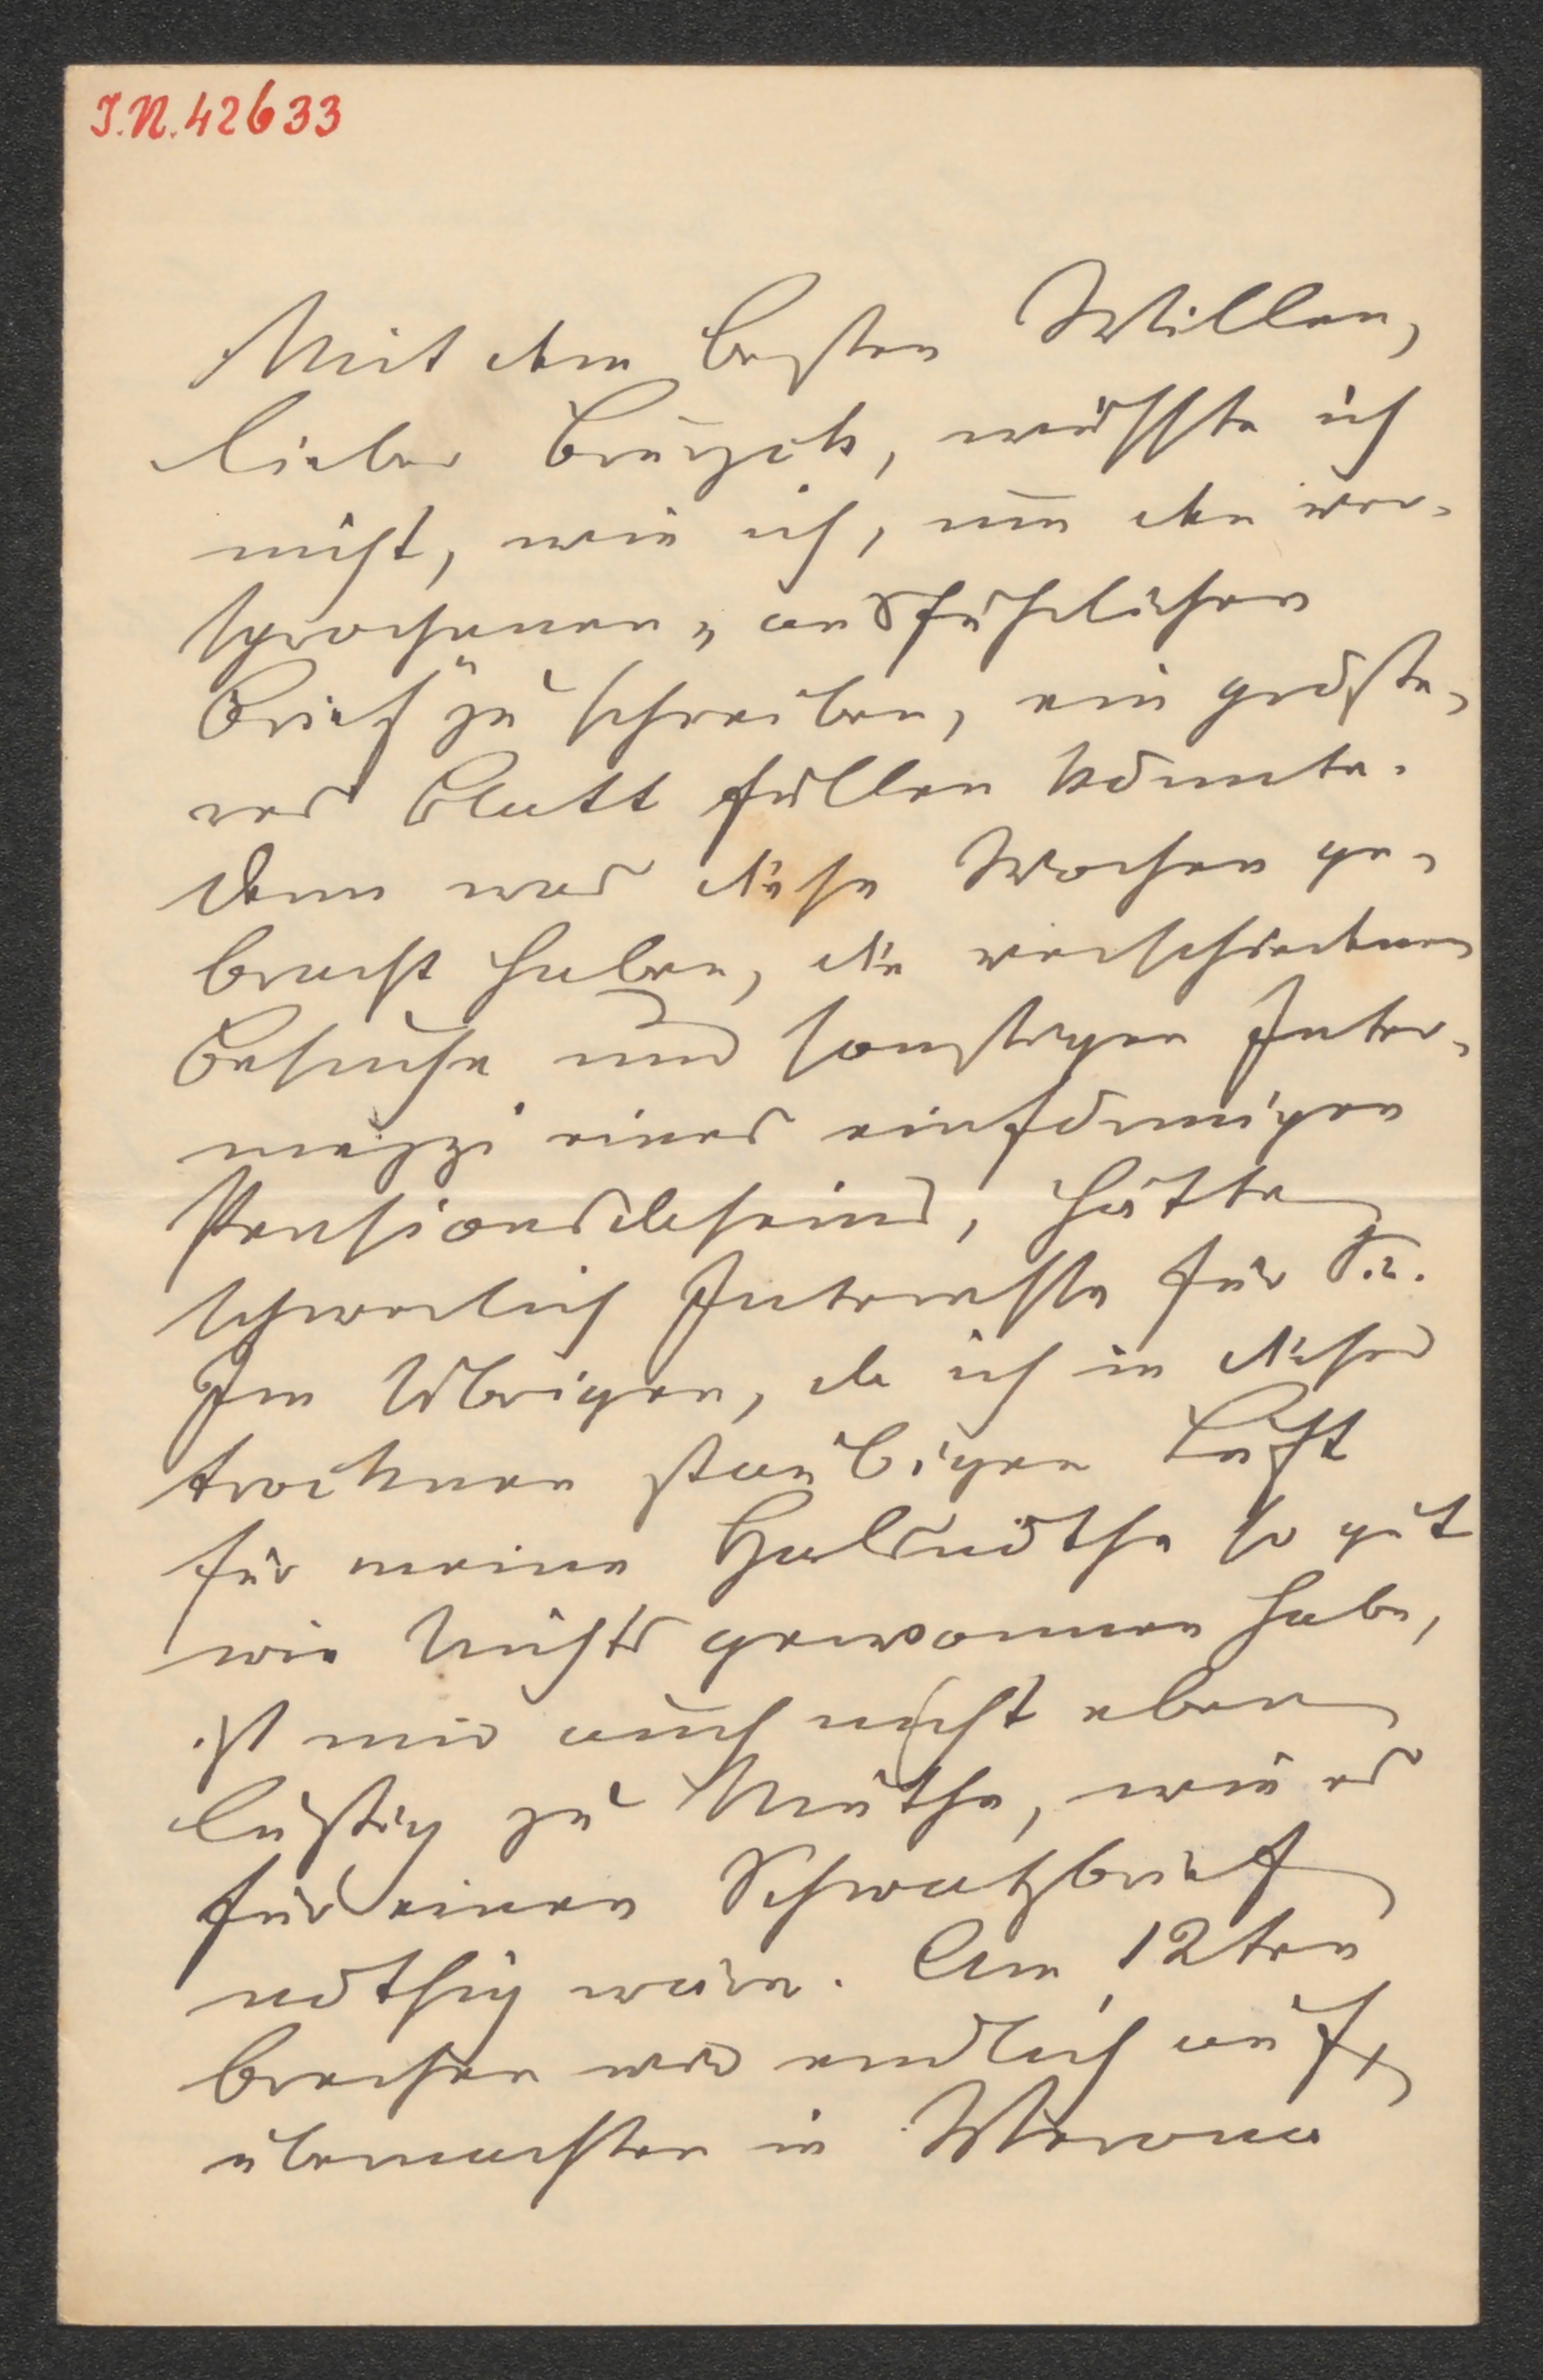 I.N. 42633
Mit dem besten Willen,
lieber, wüsste ich
nicht, wie ich, um den ver-
sprochenen „ausführlichen
Brief" zu schreiben, ein größe-
res Blatt füllen könnte.
Denn was diese Wochen ge-
bracht haben, die verschiednen
Besuche und sonstigen Inter-
mezzi eines einförmigen
Pensionsdaseins, hätte
schwerlich Interesse für Sie.
Im Übrigen, da ich in dieser
trocknen staubigen Luft
für meine Halsnöthe so gut
wie Nichts gewonnen habe,
ist mir auch nicht eben
lustig zu Muthe, wie es
für einen Schwatzbrief
nöthig wäre. Am 12ten
brechen wir endlich auf,
übernachten in Verona